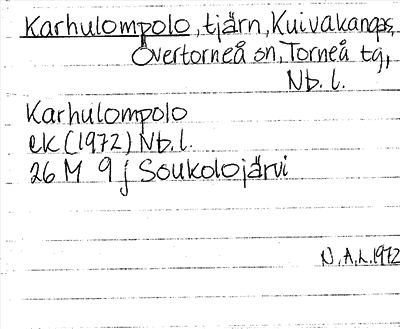 Karhulompolo, tjärn, Kuivakangas,
Övertorneå sn, Torneå tg,
Nb. l.
Karhulompolo
ek (1972) Nb. l.
26 M 9 j Soukolojärvi
N. A. L. 1972